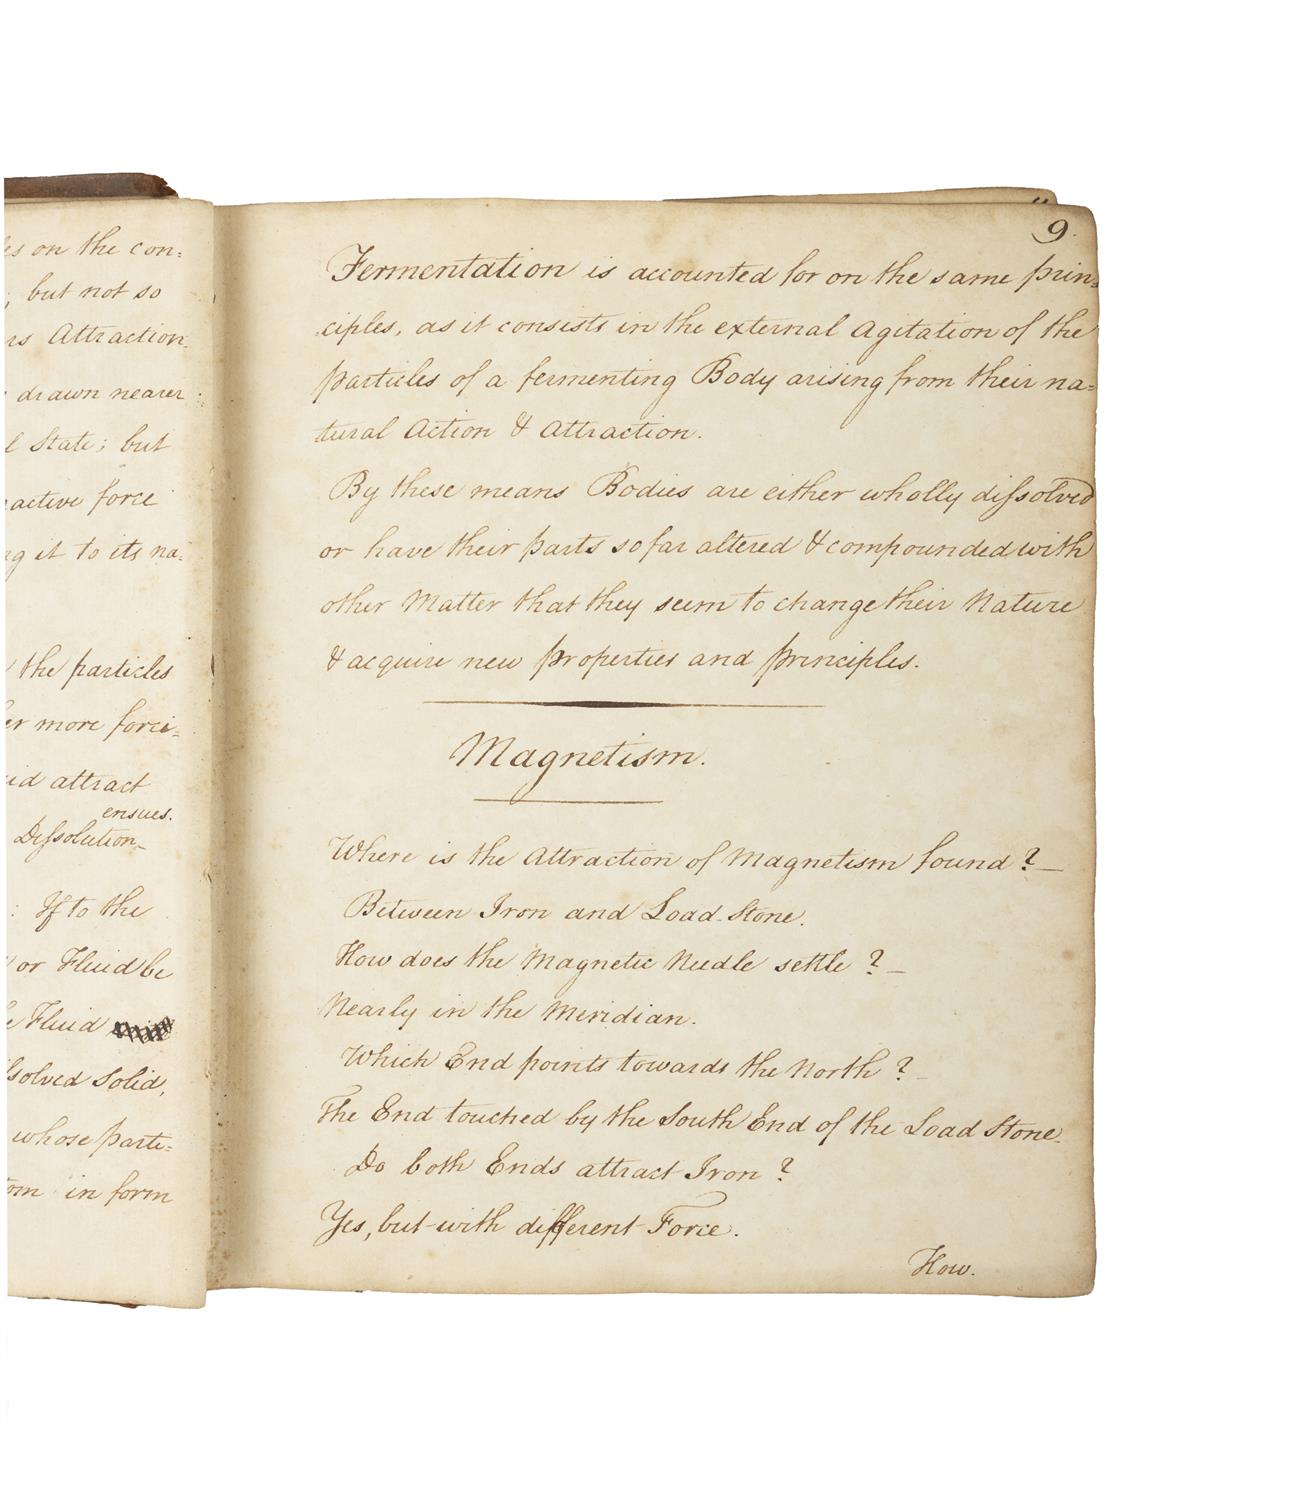 on the con:
but not so
Attraction
drawn nearer
State; but
active force
it to its na:
the particles
more forci:
attract
ensues.
Dissolution
If to the
or Fluid be
Fluid
solved Solid,
whose parti:
in form
9.
Fermentation is accounted for on the same prin:
ciples, as it consists in the external Agitation of the
particles of a fermenting Body arising from their na:
tural Action & Attraction.
By these means Bodies are either wholly dissolved
or have their parts so far altered & compounded with
other Matter that they seem to change their Nature
& acquire new properties and principles.
Magnetism.
Where is the Attraction of Magnetism found?
Between Iron and Load-Stone.
How does the Magnetic Needle settle?
Nearly in the Meridian.
Which End points towards the North?
The End touched by the South End of the Load Stone.
Do both Ends attract Iron?
Yes, but with different Force.
How.